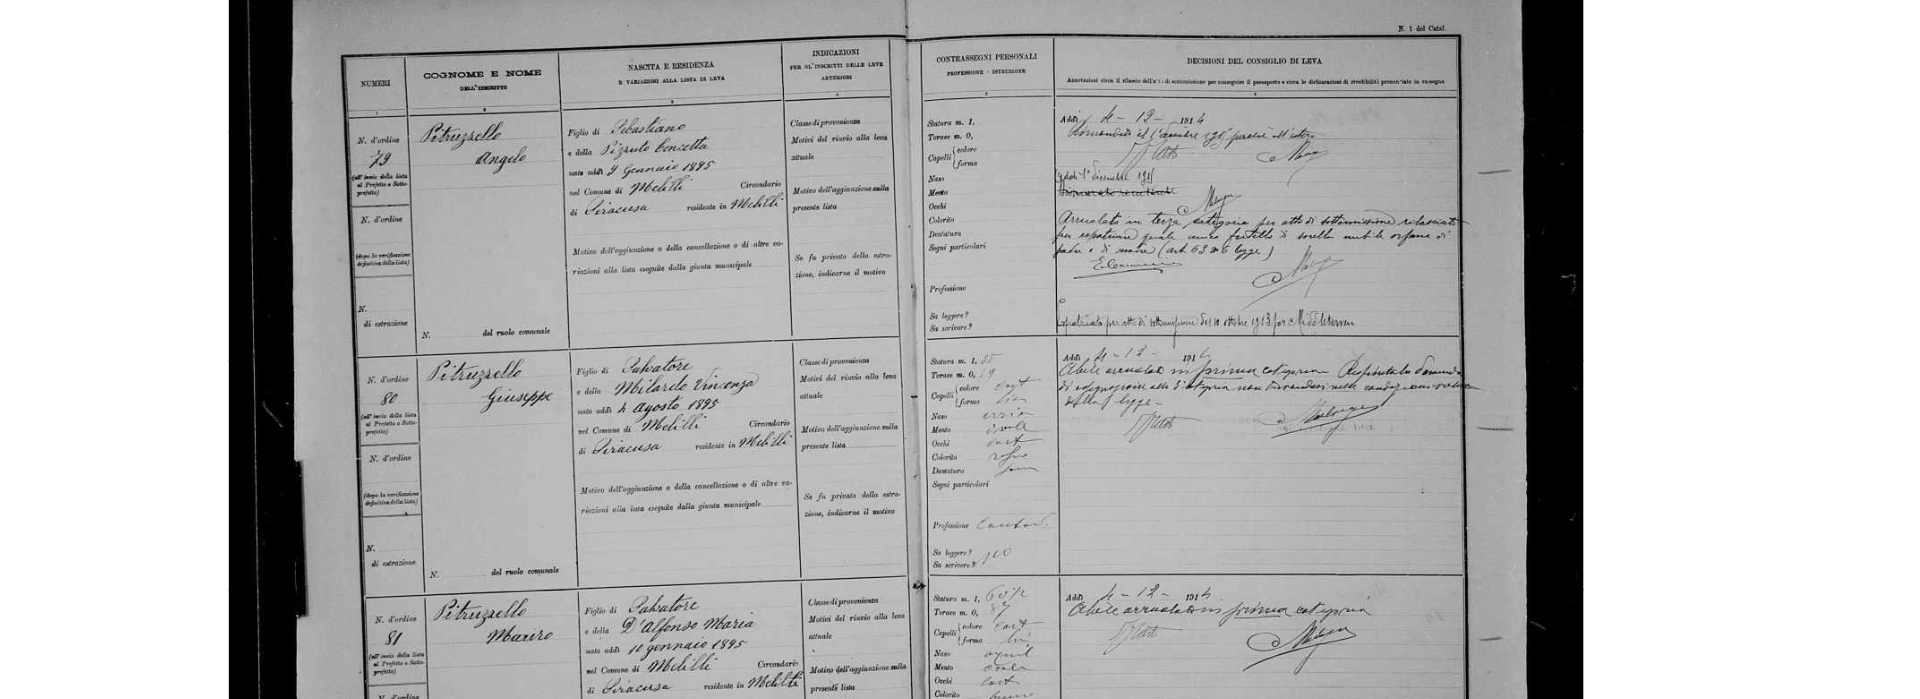 N. 1 del Catal.
NUMERI
COGNOME E NOME
DELL'INSCRITTO
NASCITA E RESIDENZA
E VARIAZIONI ALLA LISTA DI LEVA
INDICAZIONI
PER GL'INSCRITTI DELLE LEVE
ANTERIORI
CONTRASSEGNI PERSONALI
PROFESSIONE - ISTRUZIONE
DECISIONI DEL CONSIGLIO DI LEVA
N. d'ordine
79
(all'invio della lista
al Prefetto o Sotto-
prefetto)
N. d'ordine
(dopo la verificazione
definitiva della lista)
N.
di estrazione
Pitruzzello
Angelo
N. del ruolo comunale
Figlio di Sebastiano
e della Pizzuto Concetta
nato addì 9 Gennaio 1895
nel Comune di Melilli Circondario
di Siracusa residente in Melilli
Motivo dell'aggiunzione o della cancellazione o di altre va-
riazioni alla lista eseguite dalla giunta municipale
Classe di provenienza
Motivi del rinvio alla leva
attuale
Motivo dell'aggiunzione sulla
presente lista
Se fu privato della estra-
zione, indicarne il motivo
Statura m. 1,
Torace m. 0,
Capelli colore
forma
Naso
Mento
Occhi
Colorito
Dentatura
Segni particolari
Professione
Sa leggere?
Sa scrivere?
Addì 4 - 12 - 1914
Arruolato in terza categoria per atto di sottomissione rilasciato
per espatriare quale unico fratello di sorella nubile orfana di
padre e di madre (art 63 n 6 legge)
Espatriato per atto di sottomissione del 10 ottobre 1913 per Middletown
N. d'ordine
80
(all'invio della lista
al Prefetto o Sotto-
prefetto)
N. d'ordine
(dopo la verificazione
definitiva della lista)
N.
di estrazione
Pitruzzello
Giuseppe
N. del ruolo comunale
Figlio di Salvatore
e della Milardo Vincenza
nato addì 4 Agosto 1895
nel Comune di Melilli Circondario
di Siracusa residente in Melilli
Motivo dell'aggiunzione o della cancellazione o di altre va-
riazioni alla lista eseguite dalla giunta municipale
Classe di provenienza
Motivi del rinvio alla leva
attuale
Motivo dell'aggiunzione sulla
presente lista
Se fu privato della estra-
zione, indicarne il motivo
Statura m. 1,
Torace m. 0,
Capelli colore cast
forma
Naso
Mento
Occhi cast
Colorito
Dentatura
Segni particolari
Professione
Sa leggere?
Sa scrivere?
Addì 4 - 12 - 1914
Abile arruolato in prima categoria Respinta la domanda
di assegnazione alla 3ª categoria non trovandosi nelle condizioni volute
dalla legge -
N. d'ordine
81
(all'invio della lista
al Prefetto o Sotto-
prefetto)
N. d'ordine
Pitruzzello
Mauro
Figlio di Salvatore
e della D'Alfonso Maria
nato addì 10 gennaio 1895
nel Comune di Melilli Circondario
di Siracusa residente in Melilli
Classe di provenienza
Motivi del rinvio alla leva
attuale
Motivo dell'aggiunzione sulla
presente lista
Statura m. 1,
Torace m. 0,
Capelli colore cast
forma
Naso
Mento
Occhi cast
Colorito
Addì 4 - 12 - 1914
Abile arruolato in prima categoria